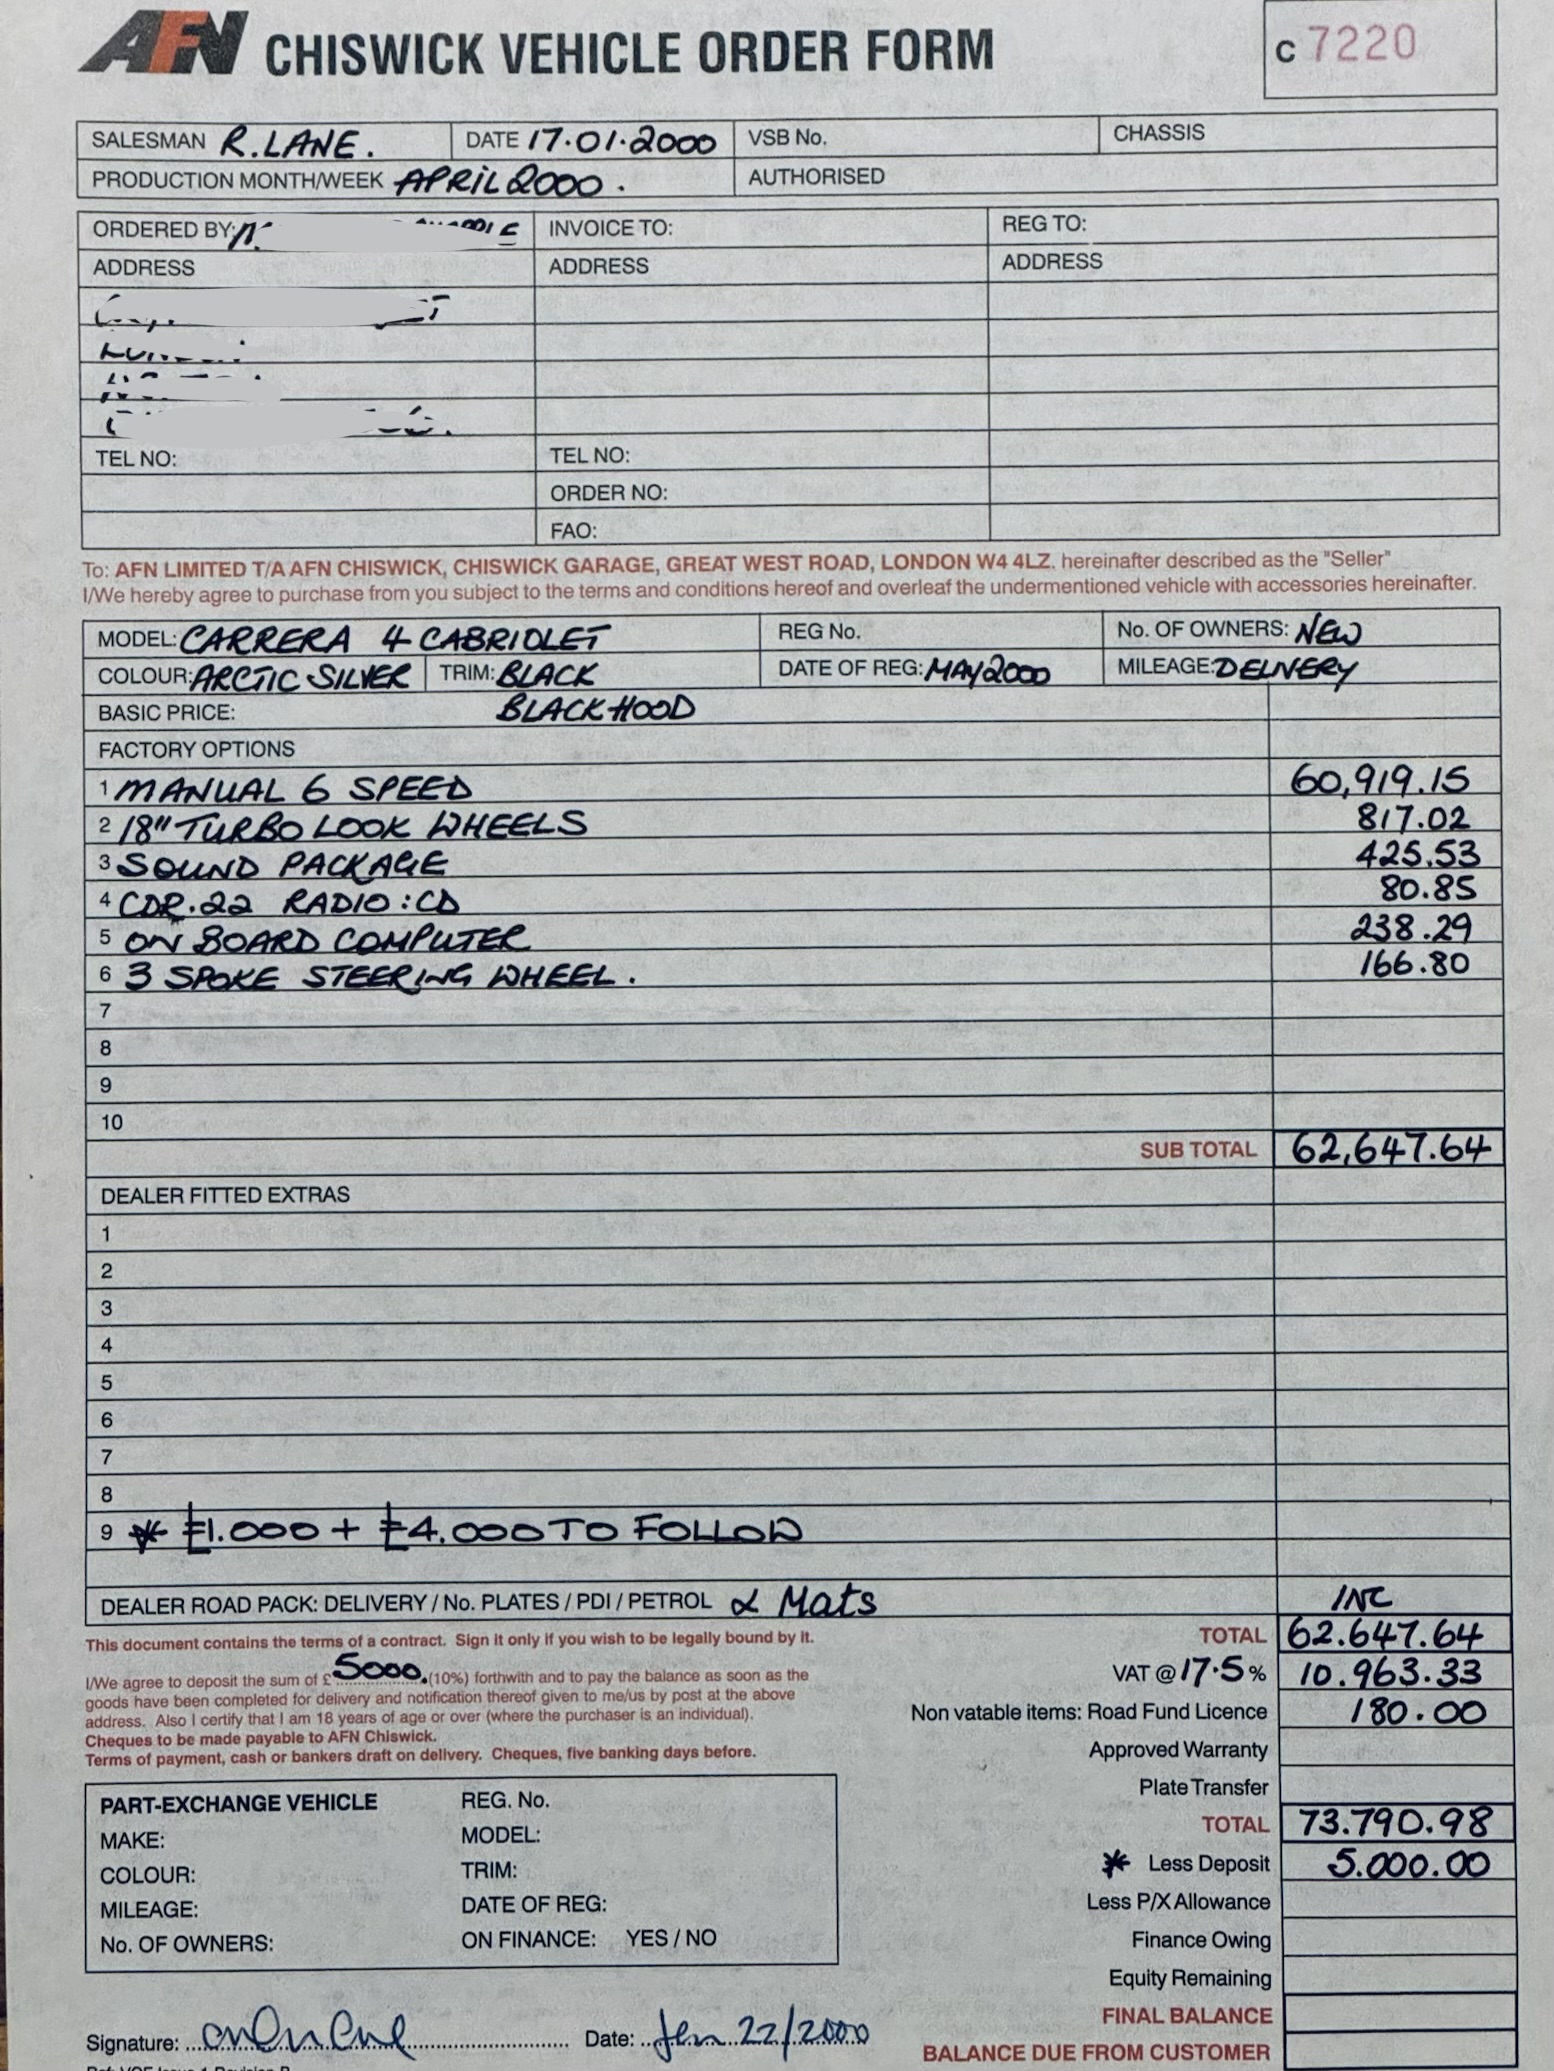 AFN CHISWICK VEHICLE ORDER FORM
C 7220
SALESMAN R.LANE. DATE 17.01.2000 VSB No. CHASSIS
PRODUCTION MONTH/WEEK APRIL 2000. AUTHORISED
ORDERED BY: INVOICE TO: REG TO:
ADDRESS ADDRESS ADDRESS
TEL NO: TEL NO:
ORDER NO:
FAO:
To: AFN LIMITED T/A AFN CHISWICK, CHISWICK GARAGE, GREAT WEST ROAD, LONDON W4 4LZ. hereinafter described as the "Seller"
I/We hereby agree to purchase from you subject to the terms and conditions hereof and overleaf the undermentioned vehicle with accessories hereinafter.
MODEL: CARRERA 4 CABRIOLET REG No. No. OF OWNERS: NEW
COLOUR: ARCTIC SILVER TRIM: BLACK DATE OF REG: MAY 2000 MILEAGE: DELIVERY
BASIC PRICE: BLACK HOOD
FACTORY OPTIONS
1 MANUAL 6 SPEED 60,919.15
2 18" TURBO LOOK WHEELS 817.02
3 SOUND PACKAGE 425.53
4 CDR.22 RADIO:CD 80.85
5 ON BOARD COMPUTER 238.29
6 3 SPOKE STEERING WHEEL. 166.80
7
8
9
10
SUB TOTAL 62,647.64
DEALER FITTED EXTRAS
1
2
3
4
5
6
7
8
9 * £1.000 + £4.000 TO FOLLOW
DEALER ROAD PACK: DELIVERY / No. PLATES / PDI / PETROL & Mats INC
This document contains the terms of a contract. Sign it only if you wish to be legally bound by it.
TOTAL 62.647.64
I/We agree to deposit the sum of £ 5000. (10%) forthwith and to pay the balance as soon as the
goods have been completed for delivery and notification thereof given to me/us by post at the above
address. Also I certify that I am 18 years of age or over (where the purchaser is an individual).
Cheques to be made payable to AFN Chiswick.
Terms of payment, cash or bankers draft on delivery. Cheques, five banking days before.
VAT @ 17.5% 10.963.33
Non vatable items: Road Fund Licence 180.00
Approved Warranty
Plate Transfer
TOTAL 73.790.98
* Less Deposit 5.000.00
Less P/X Allowance
Finance Owing
Equity Remaining
FINAL BALANCE
BALANCE DUE FROM CUSTOMER
PART-EXCHANGE VEHICLE REG. No.
MAKE: MODEL:
COLOUR: TRIM:
MILEAGE: DATE OF REG:
No. OF OWNERS: ON FINANCE: YES / NO
Signature: Date: Jan 22/2000